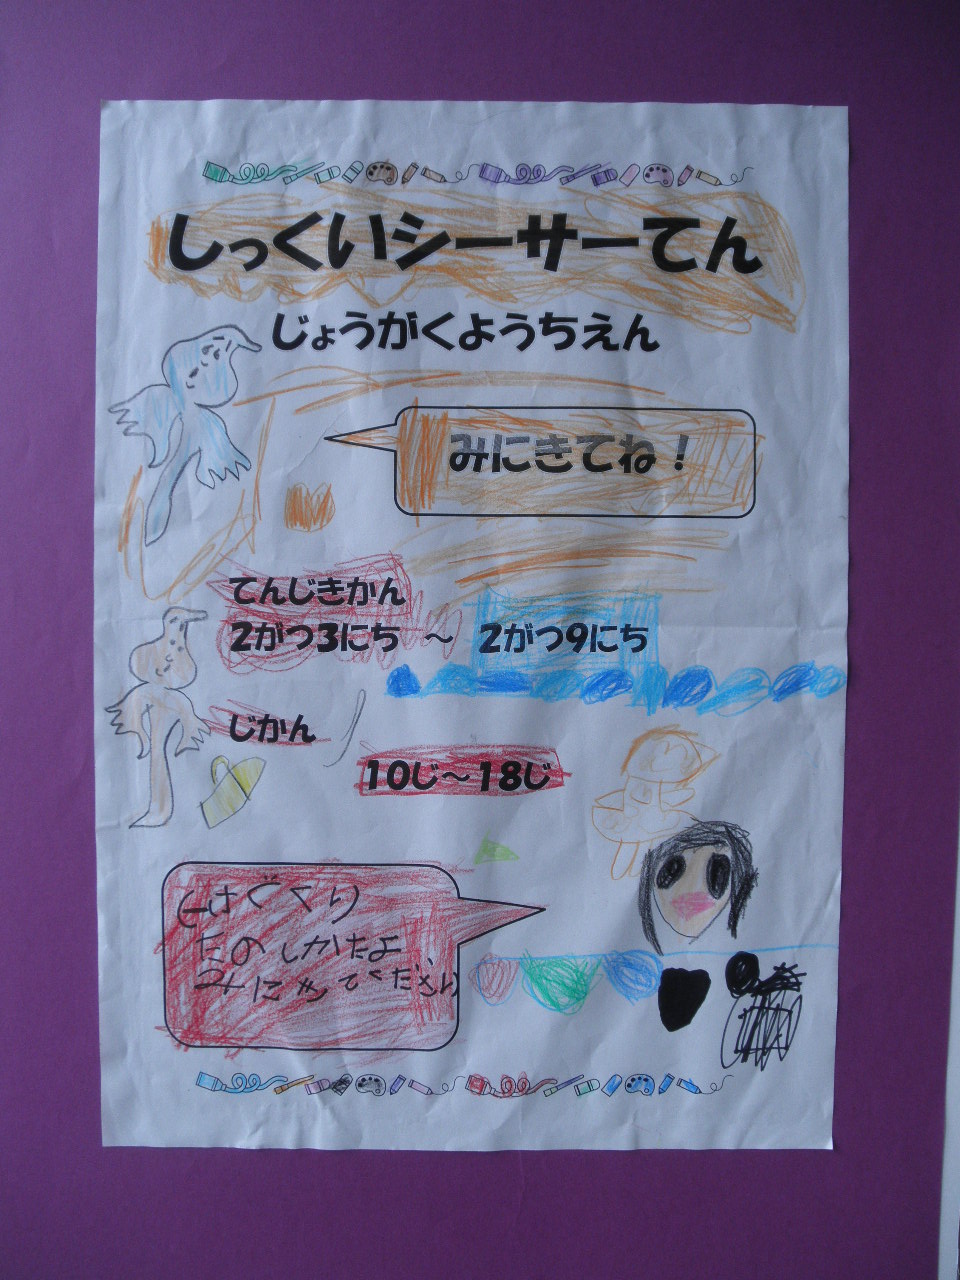 しっくいシーサーてん
じょうがくようちえん
みにきてね！
てんじきかん
2がつ3にち ～ 2がつ9にち
じかん
10じ～18じ
たのしかたよ
みにきてください